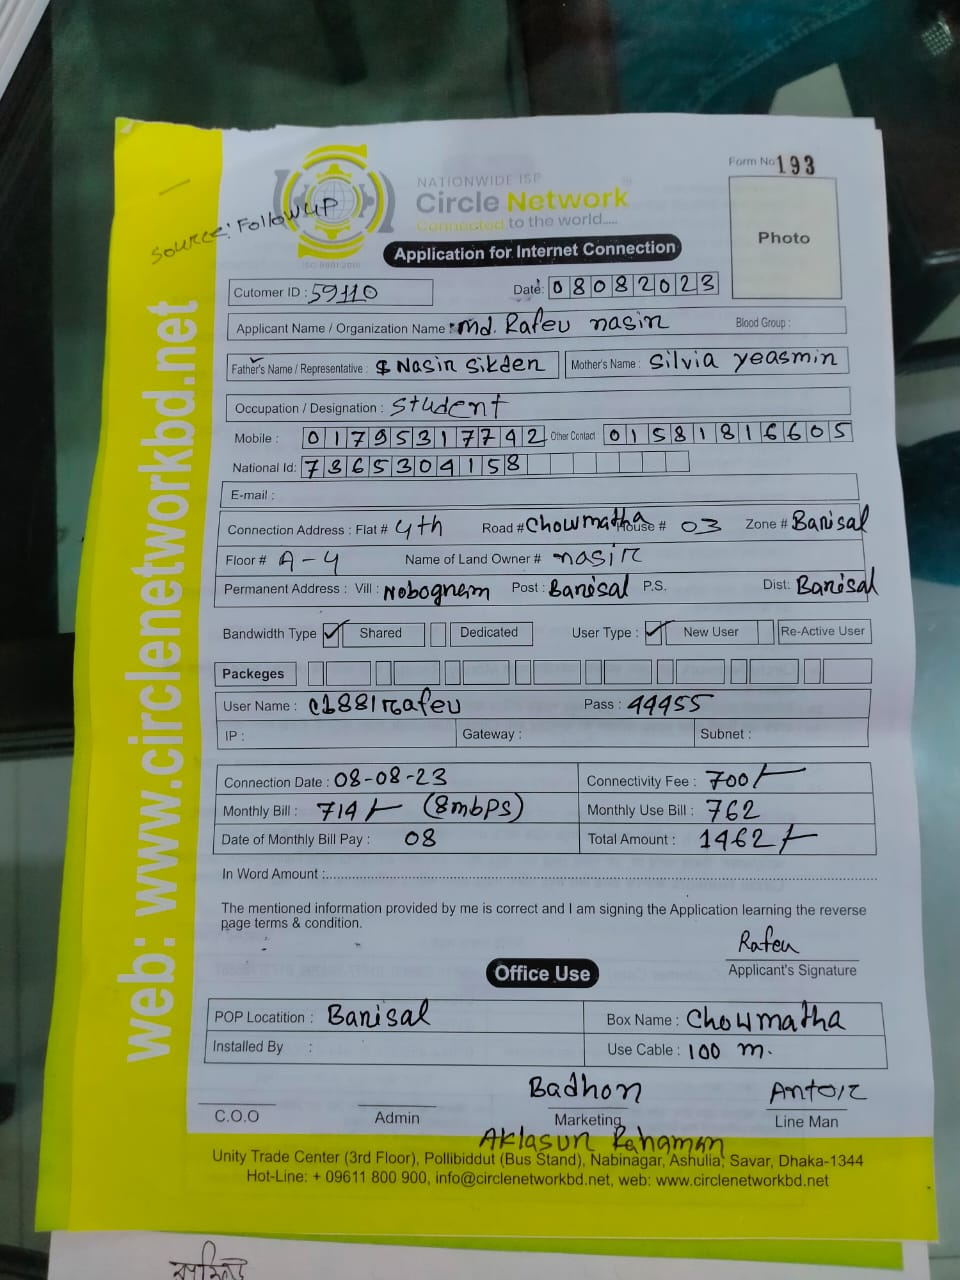 web: www.circlenetworkbd.net
Source: Follow up
NATIONWIDE ISP
Circle Network
Connected to the world.....
ISO 9001:2015
Form No 193
Photo
Application for Internet Connection
Cutomer ID : 59110
Date: 08082023
Applicant Name / Organization Name : Md. Rafeu nasir Blood Group :
Father's Name / Representative : Nasir Sikder Mother's Name : Silvia yeasmin
Occupation / Designation : Student
Mobile : 01795317742 Other Contact 01581816605
National Id: 7365304158
E-mail :
Connection Address : Flat # 4th Road # Chowmatha House # 03 Zone # Barisal
Floor # A-4 Name of Land Owner # nasir
Permanent Address : Vill : Nobogram Post : Barisal P.S. Dist: Barisal
Bandwidth Type ✓ Shared Dedicated User Type : ✓ New User Re-Active User
Packeges
User Name : c1881rafeu Pass : 44455
IP : Gateway : Subnet :
Connection Date : 08-08-23 Connectivity Fee : 700/-
Monthly Bill : 714/- (8mbps) Monthly Use Bill : 762
Date of Monthly Bill Pay : 08 Total Amount : 1462/-
In Word Amount :
The mentioned information provided by me is correct and I am signing the Application learning the reverse
page terms & condition.
Rafeu
Applicant's Signature
Office Use
POP Locatition : Barisal Box Name : Chowmatha
Installed By : Use Cable : 100 m.
Badhon Antor
C.O.O Admin Marketing Line Man
Aklasur Rahaman
Unity Trade Center (3rd Floor), Pollibiddut (Bus Stand), Nabinagar, Ashulia, Savar, Dhaka-1344
Hot-Line: + 09611 800 900, info@circlenetworkbd.net, web: www.circlenetworkbd.net